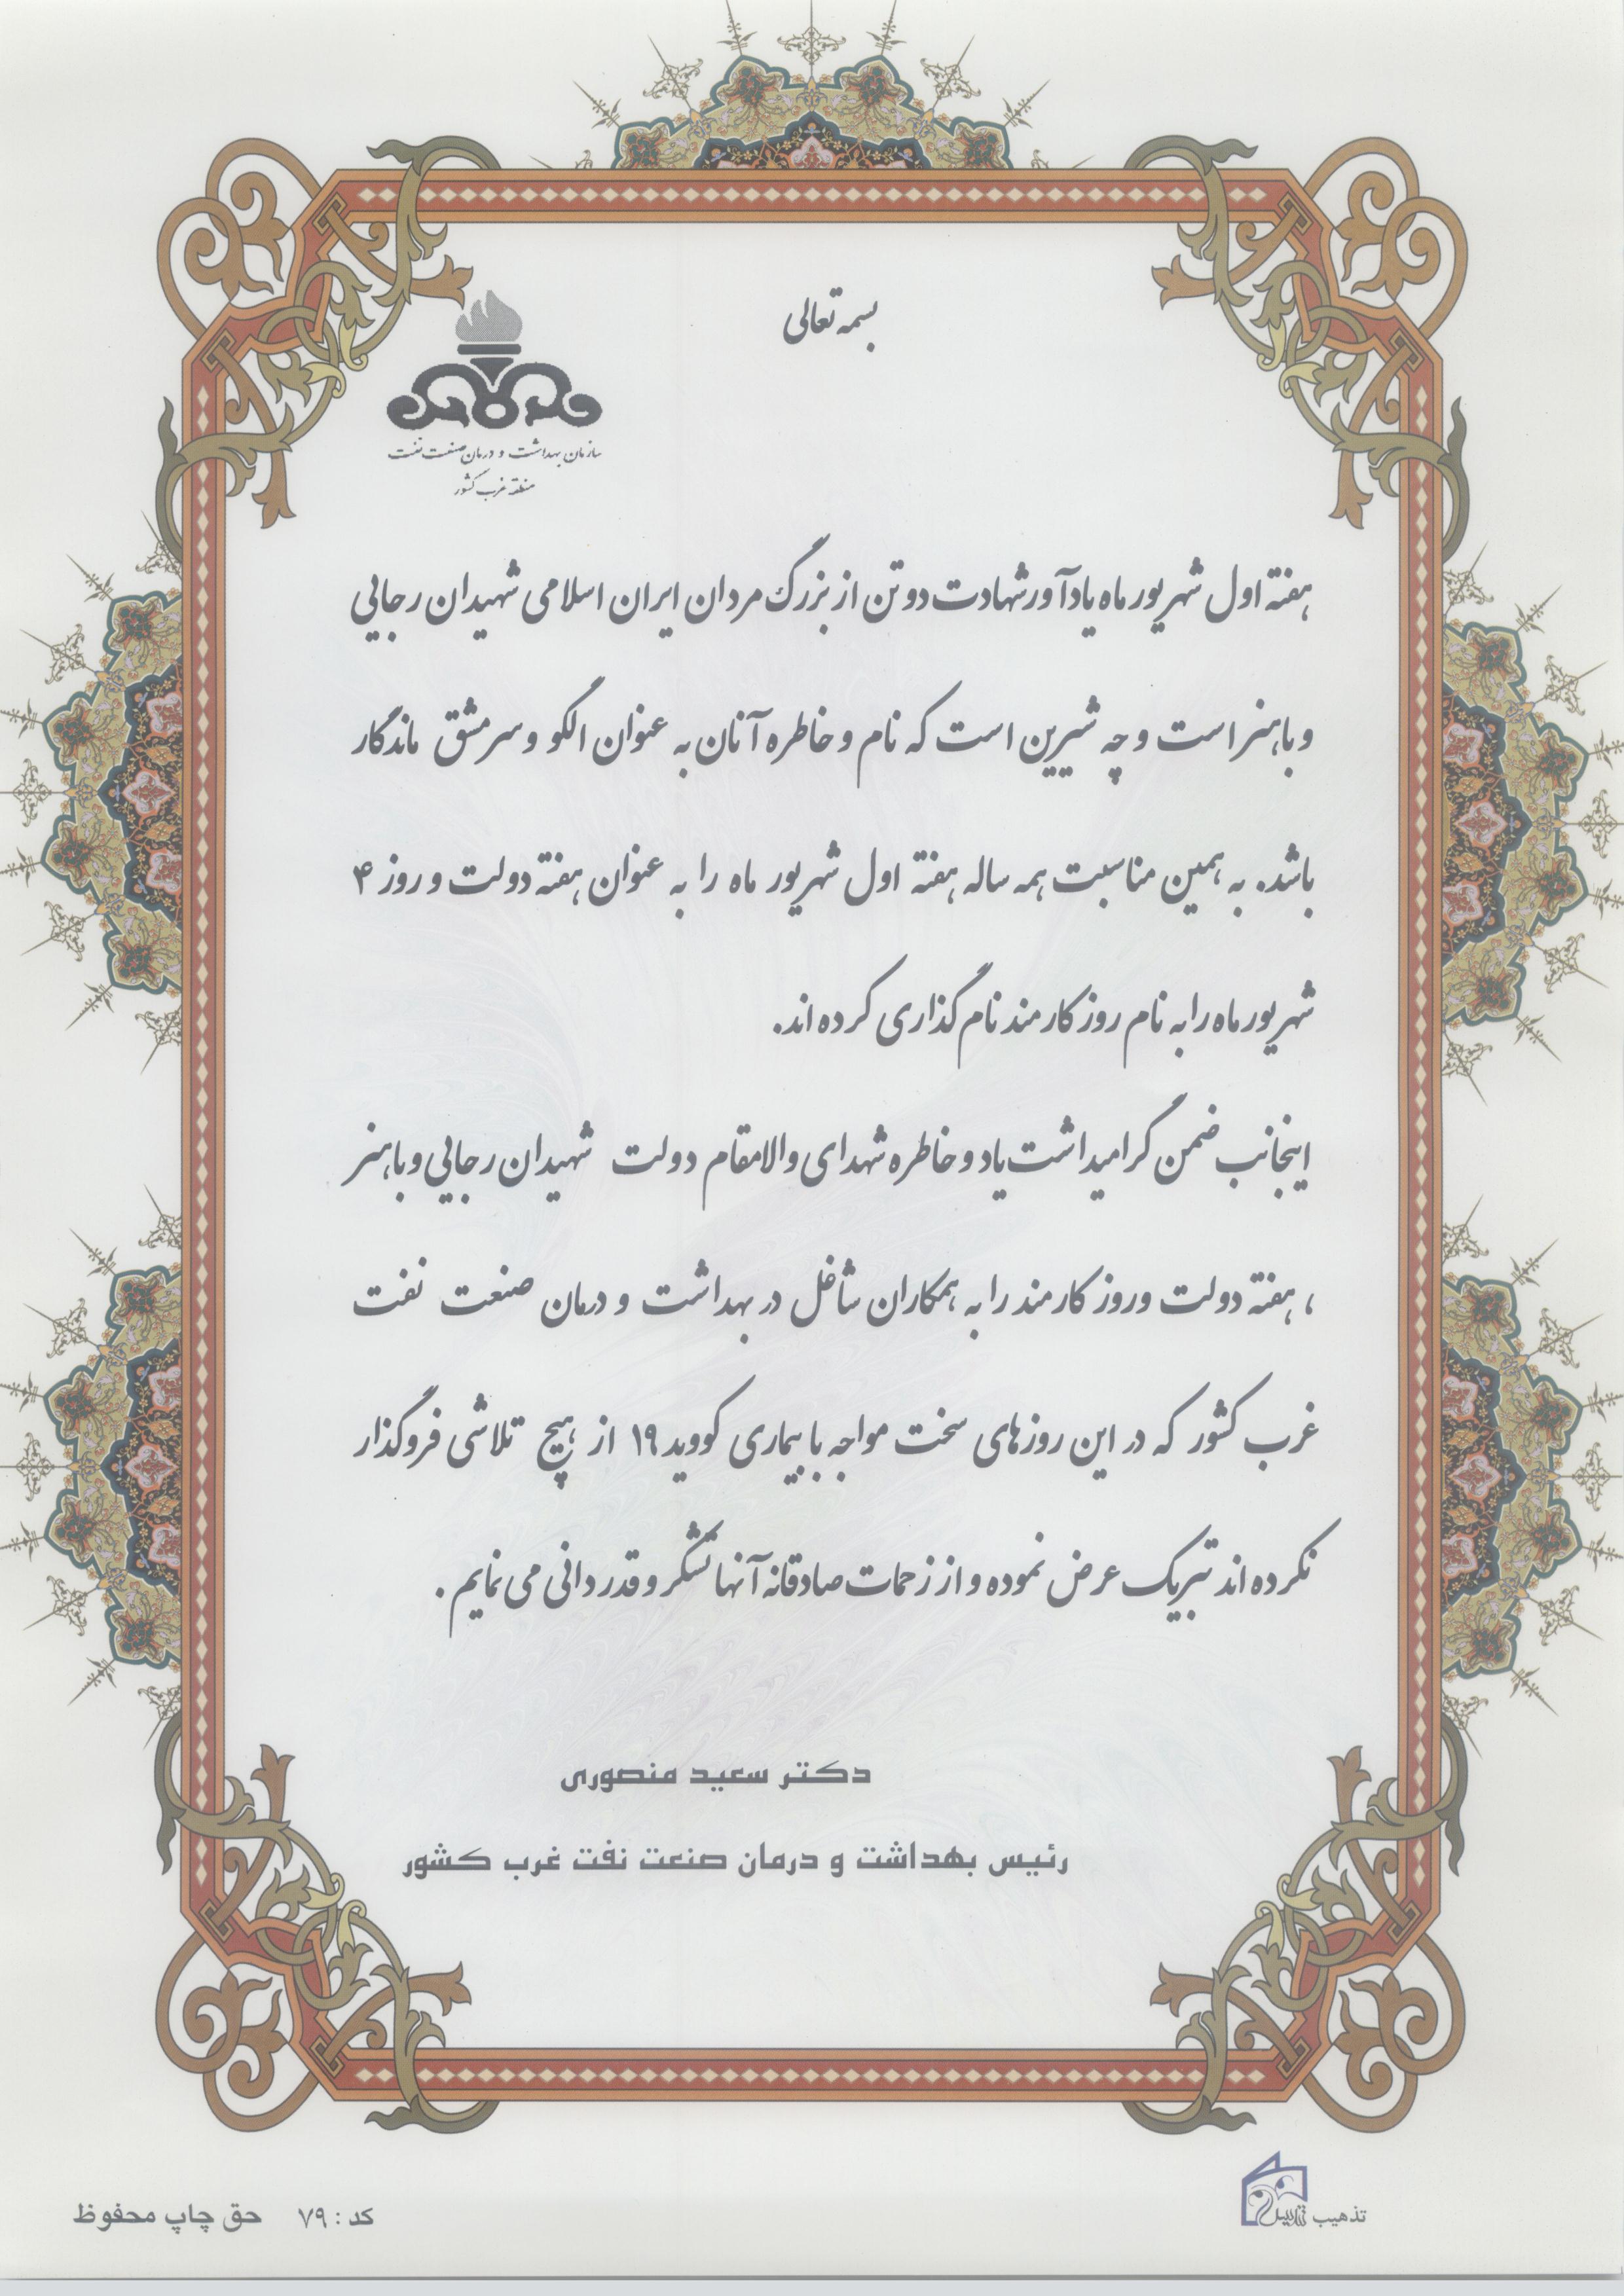 بسمه تعالی
سازمان بهداشت و درمان صنعت نفت
منطقه غرب کشور
هفته اول شهریور ماه یادآور شهادت دو تن از بزرگ مردان ایران اسلامی شهیدان رجایی
و باهنر است و چه شیرین است که نام و خاطره آنان به عنوان الگو و سرمشق ماندگار
باشد. به همین مناسبت همه ساله هفته اول شهریور ماه را به عنوان هفته دولت و روز ۴
شهریور ماه را به نام روز کارمند نام گذاری کرده اند.
اینجانب ضمن گرامیداشت یاد و خاطره شهدای والامقام دولت شهیدان رجایی و باهنر
، هفته دولت و روز کارمند را به همکاران شاغل در بهداشت و درمان صنعت نفت
غرب کشور که در این روزهای سخت مواجه با بیماری کووید ۱۹ از هیچ تلاشی فروگذار
نکرده اند تبریک عرض نموده و از زحمات صادقانه آنها تشکر و قدردانی می نمایم .
دکتر سعید منصوری
رئیس بهداشت و درمان صنعت نفت غرب کشور
تذهیب
کد : ۷۹ حق چاپ محفوظ